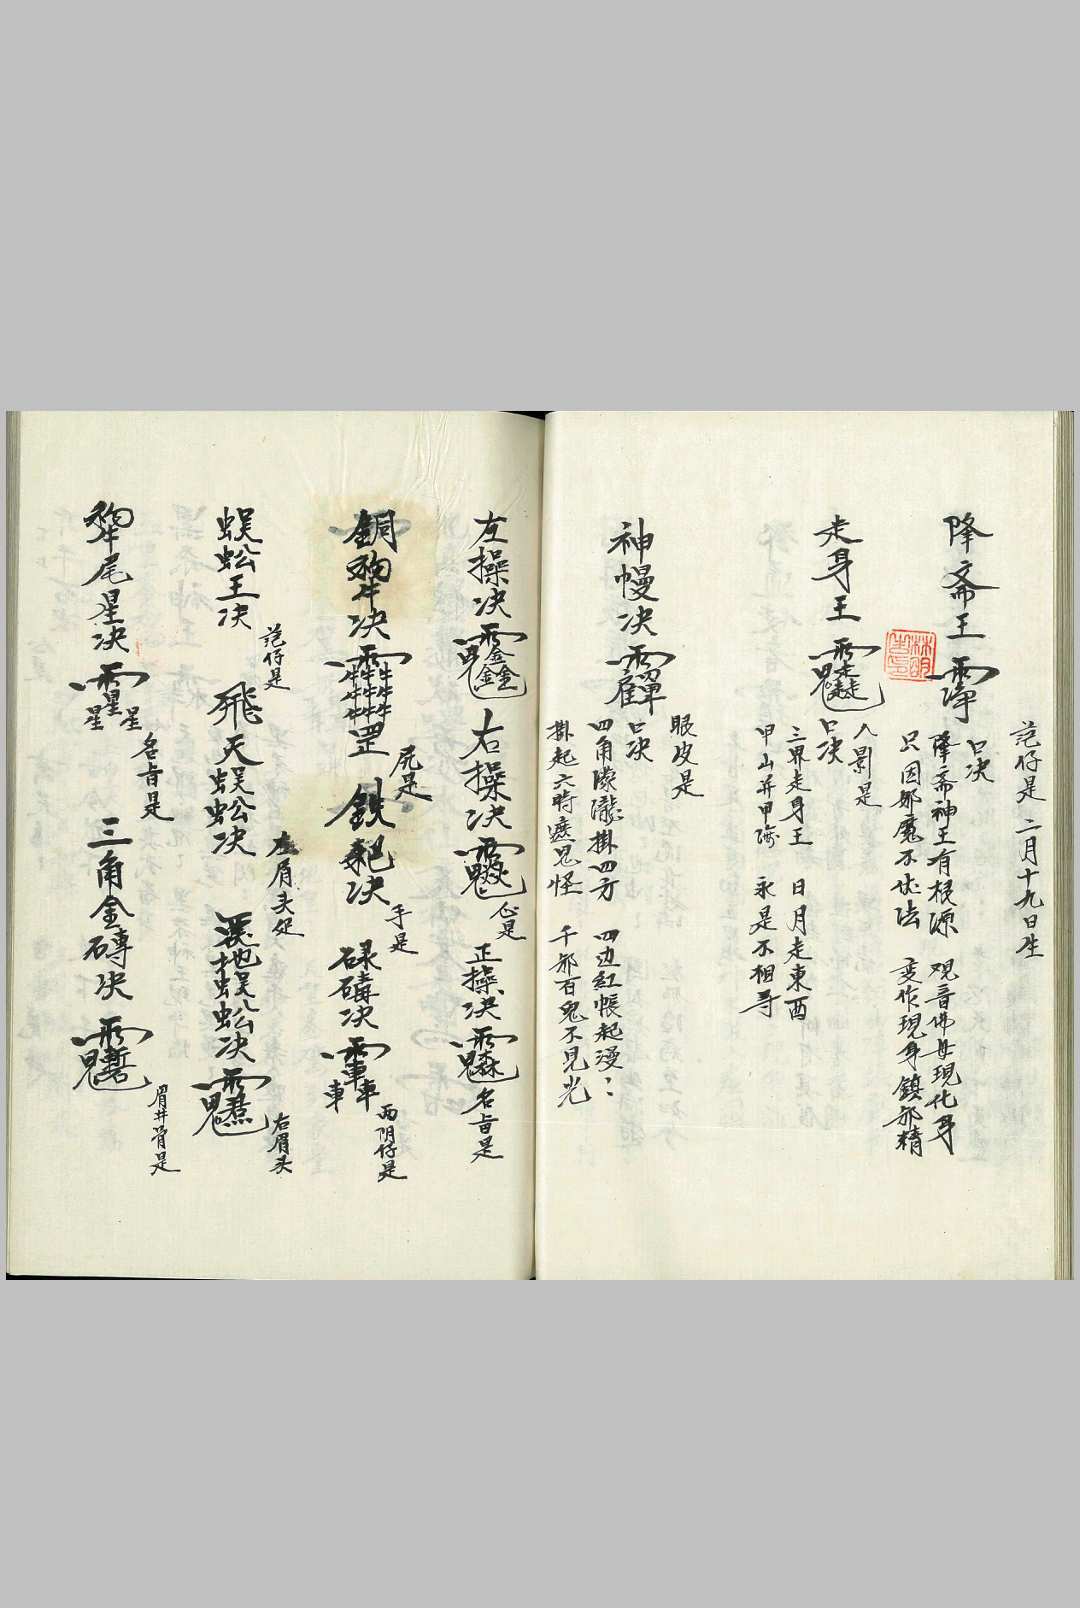 范仔是 二月十九日生
降斋王
口决
降斋神王有根源 观音佛母現化身
只因邪魔不伏法 变作現身鎮邪精
走身王
人影是
口决
三界走身王 日月走東西
甲山并甲 永是不相
神幔决
眼皮是
口决
四角朦朧掛四方 四边紅帳起漫:
掛起六時遮鬼怪 千邪百鬼不見光
左操决 右操决 心是 正操决 名旨是
銅 决 罡 尻是 鉄耙决 手是 碌碡决 両阴仔是
蜈蚣王决 范仔是 飛天蜈蚣决 左眉头 地蜈蚣决 右眉头
尾星决 名旨是 三角金磚决 眉井骨是